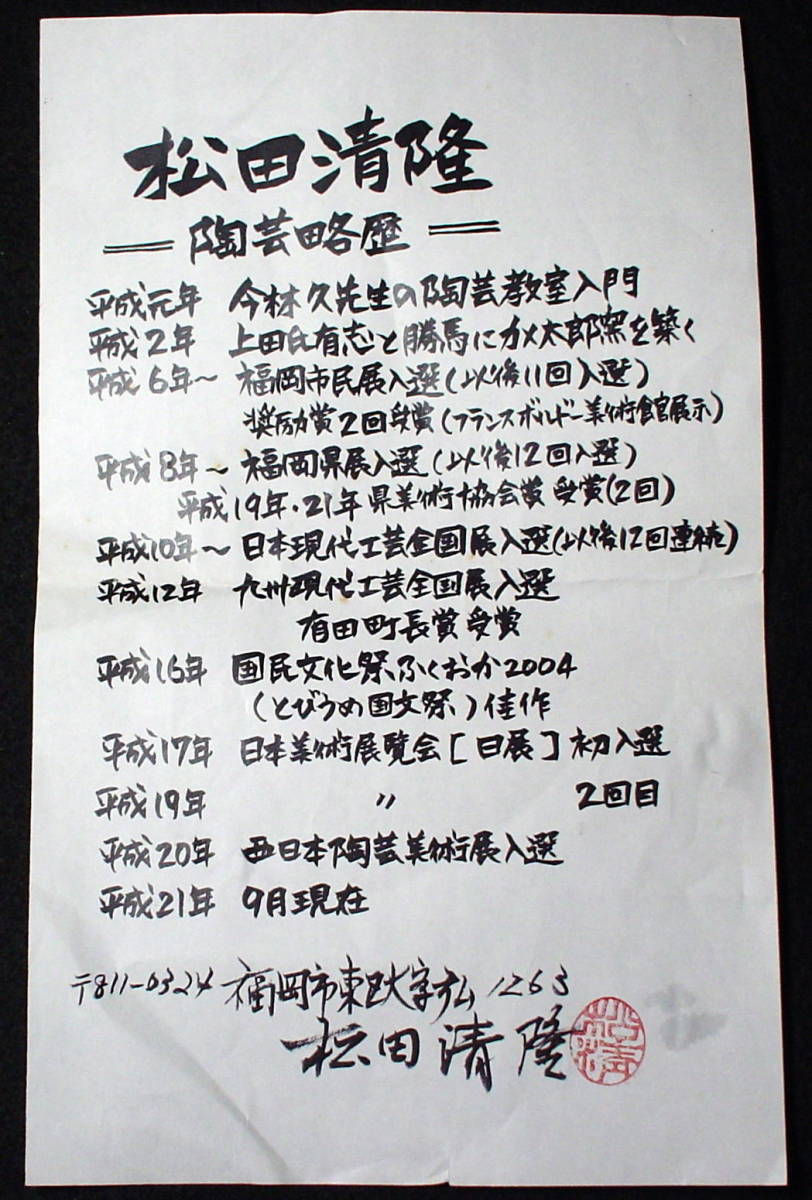 松田清隆
陶芸略歴
平成元年 今林久先生の陶芸教室入門
平成2年 上田氏有志と勝馬にカメ太郎窯を築く
平成6年〜 福岡市民展入選(以後11回入選)
奨励賞2回受賞(フランスボルドー美術館展示)
平成8年〜 福岡県展入選(以後12回入選)
平成19年・21年 県美術協会賞受賞(2回)
平成10年〜 日本現代工芸全国展入選(以後12回連続)
平成12年 九州現代工芸全国展入選
有田町長賞受賞
平成16年 国民文化祭ふくおか2004
(とびうめ国文祭)佳作
平成17年 日本美術展覧会[日展]初入選
平成19年 〃 2回目
平成20年 西日本陶芸美術展入選
平成21年 9月現在
〒811-0324 福岡市東区大字弘1263
松田清隆